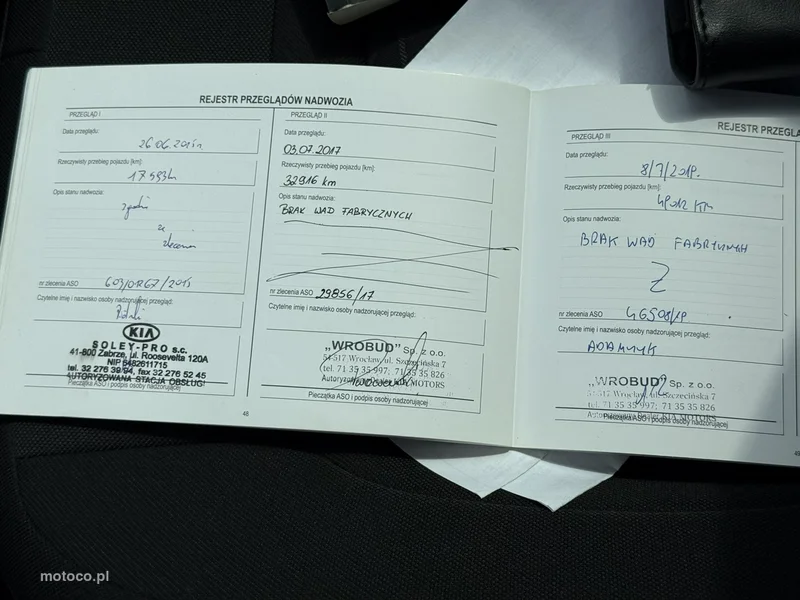 REJESTR PRZEGLĄDÓW NADWOZIA
PRZEGLĄD I
Data przeglądu:
26.06.2015
Rzeczywisty przebieg pojazdu [km]:
17593
Opis stanu nadwozia:
ze
zleceniem
nr zlecenia ASO
Czytelne imię i nazwisko osoby nadzorującej przegląd:
KIA
SOLEY-PRO s.c.
41-800 Zabrze, ul. Roosevelta 120A
NIP 6482611715
tel. 32 276 39 84, fax 32 276 52 45
AUTORYZOWANA STACJA OBSŁUGI
Pieczątka ASO i podpis osoby nadzorującej
48
PRZEGLĄD II
Data przeglądu:
03.07.2017
Rzeczywisty przebieg pojazdu [km]:
32916 km
Opis stanu nadwozia:
BRAK WAD FABRYCZNYCH
nr zlecenia ASO 29856/17
Czytelne imię i nazwisko osoby nadzorującej przegląd:
„WROBUD" Sp. z o.o.
51-517 Wrocław, ul. Szczecińska 7
tel. 71 35 35 997; 71 35 35 826
Autoryzowany MOTORS
Pieczątka ASO i podpis osoby nadzorującej
REJESTR PRZEGLĄ
PRZEGLĄD III
Data przeglądu:
8/7/2019.
Rzeczywisty przebieg pojazdu [km]:
49012 KM
Opis stanu nadwozia:
BRAK WAD FABRYCZNYCH
nr zlecenia ASO 46508/19
Czytelne imię i nazwisko osoby nadzorującej przegląd:
ADAMCZYK
„WROBUD" Sp. z o.o.
51-517 Wrocław, ul. Szczecińska 7
tel. 71 35 35 997; 71 35 35 826
KIA MOTORS
Pieczątka ASO i podpis osoby nadzorującej
49
motoco.pl